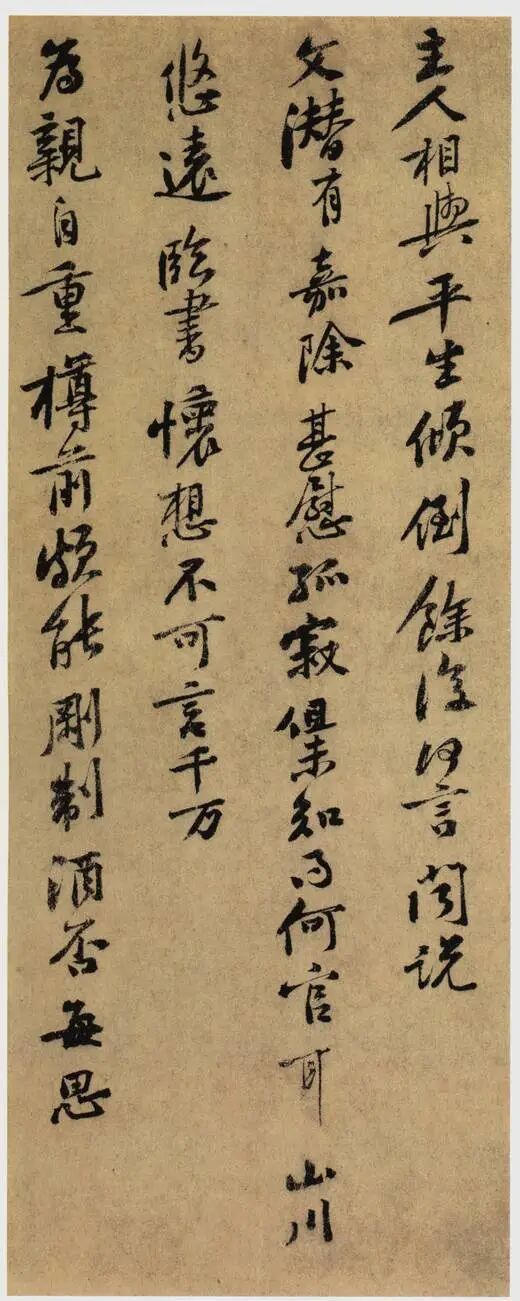 主人相與平生傾倒餘復何言聞説
文潛有嘉除甚慰孤寂但未知得何官耳山川
悠遠臨書懷想不可言千万
為親自重樽前頗能剛制酒否每思